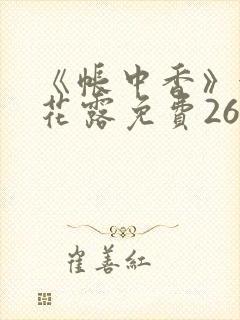 《帐中香》
花露免費26
崔善紅